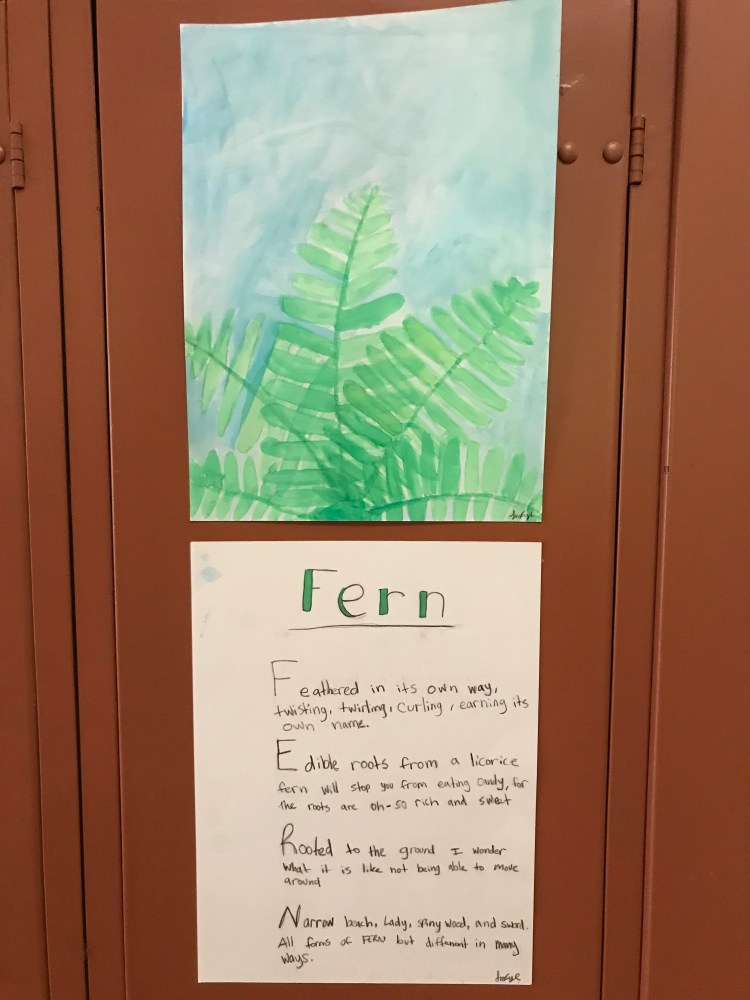 Fern
Feathered in its own way,
twisting, twirling, curling, earning its
own name.
Edible roots from a licorice
fern will stop you from eating candy, for
the roots are oh-so rich and sweet
Rooted to the ground I wonder
what it is like not being able to move
around
Narrow beach, Lady, spiny wood, and sword.
All forms of FERN but different in many
ways.